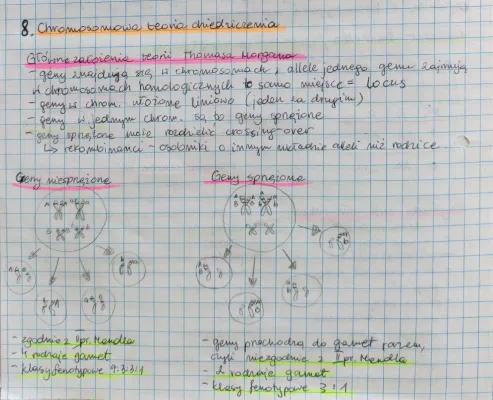 8. Chromosomowa teoria dziedziczenia
Główne założenia teorii Thomasa Morgana
- geny znajdują się w chromosomach, allele jednego genu zajmują
w chromosomach homologicznych to samo miejsce = locus
- geny w chrom. ułożone liniowo (jeden za drugim)
- geny w jednym chrom. są to geny sprzężone
- geny sprzężone może rozdzielić crossing-over
↳ rekombinanci - osobniki o innym układzie alleli niż rodzice
Geny niesprzężone
Geny sprzężone
- zgodnie z II pr. Mendla
- 4 rodzaje gamet
- klasy fenotypowe 9:3:3:1
- geny przechodzą do gamet razem,
czyli niezgodnie z II pr. Mendla
- 2 rodzaje gamet
- klasy fenotypowe 3:1